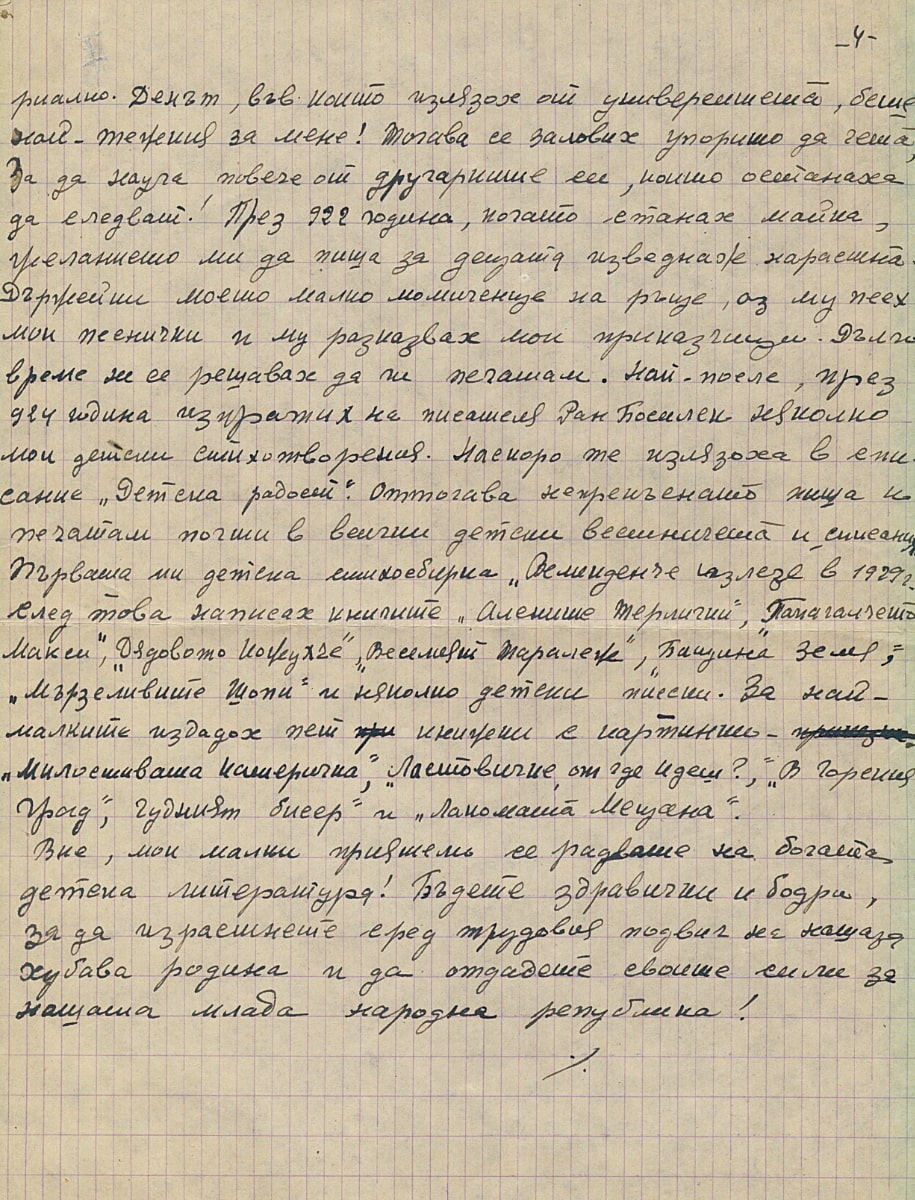 -4-
риално. Денът, във който излязох от университета, беше
най-тежкия за мене! Тогава се залових упорито да чета,
За да науча повече от другарите си, които останаха
да следват! През 922 година, когато станах майка,
желанието ми да пиша за децата изведнаж нарастна.
Държейки моето малко момиченце на ръце, аз му пеех
мои песнички и му разказвах мои приказчици. Дълго
време не се решавах да ги печатам. Най-после, през
924 година изпратих на писателя Ран Босилек няколко
мои детски стихотворения. Наскоро те излязоха в спи-
сание „Детска радост“. Оттогава непрекъснато пиша и
печатам почти в всички детски вестничета и списания.
Първата ми детска стихосбирка „Великденче“ излезе в 1929 г.
след това написах книгите „Алените терлички“, „Папагалчето
Макси“, „Дядовото Кожухче“, „Веселият Таралеж“, „Бащина Земя“,
„Мързеливите Шопи“ и няколко детски пиески. За най-
малките издадох пет при книжки с картинки –
„Милостивата Катеричка“, „Ластовичке, от где идеш?“, „В Горския
град“, Чудният бисер“ и „Лакомата Мецана“.
Вие, мои малки приятели се радвате на богата
детска литература! Бъдете здравички и бодри,
за да израстнете сред трудовия подвиг на нашата
хубава родина и да отдадете своите сили за
нашата млада народна република!
./.